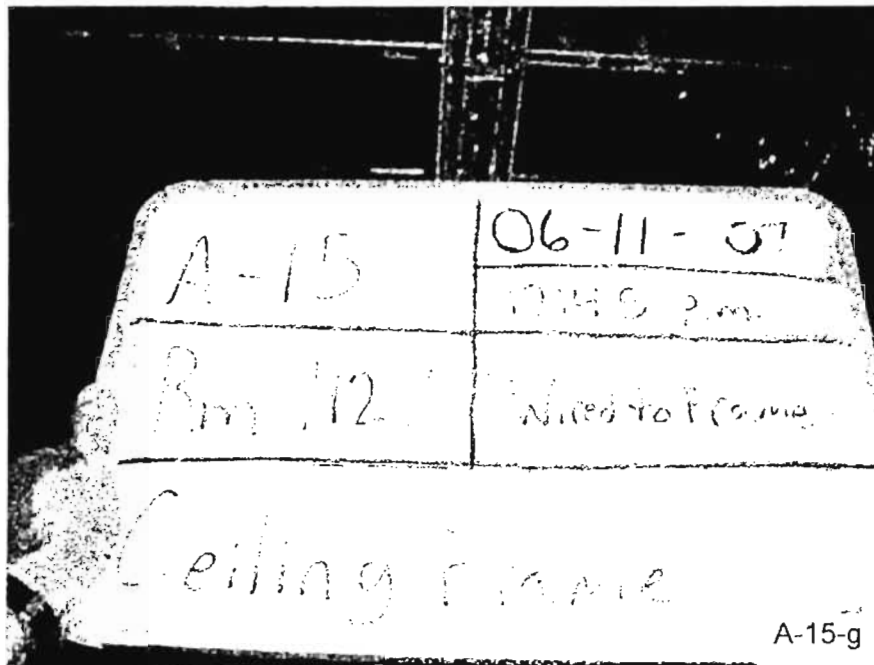 A-15
06-11-07
p.m.
Rm 12
Wired to Frame
Ceiling Frame
A-15-g